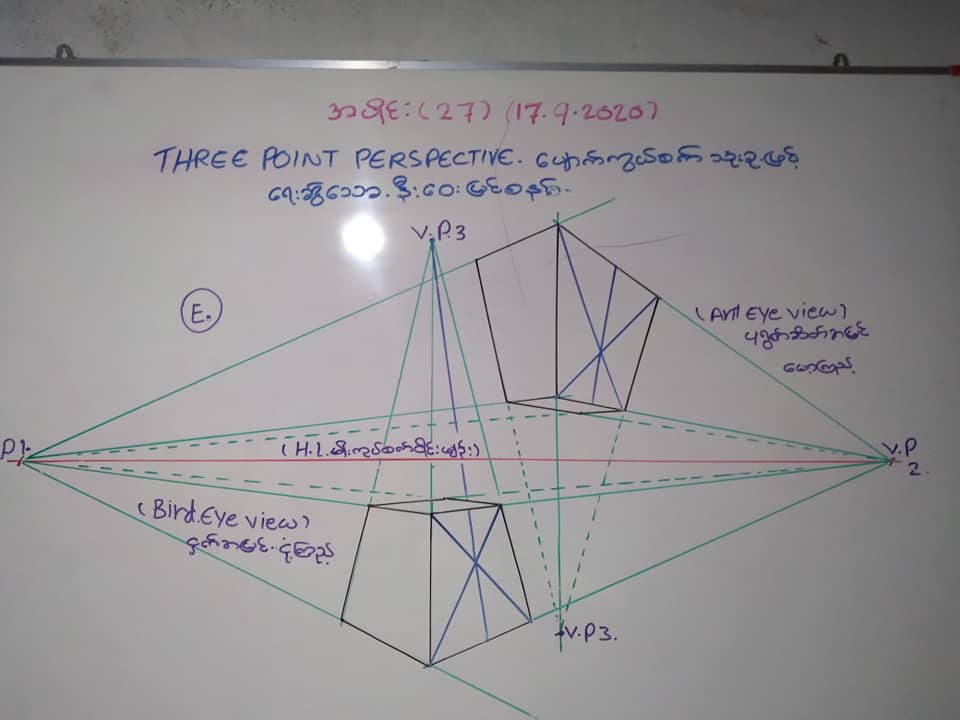 အပိုင်း (27) (17.9.2020)
THREE POINT PERSPECTIVE. ပျောက်ကွယ်စက် သုံးခုဖြင့်
ရေးဆွဲသော အနီးအဝေးမြင်စနစ်.
V.P.3
E.
(Ant Eye view)
ပုရွက်ဆိတ်အမြင်
မော့ကြည့်
P1.
(H.L. မိုးကုပ်စက်ဝိုင်းမျဉ်း)
V.P
2.
(Bird.Eye view)
ငှက်အမြင်. ငုံ့ကြည့်
V.P3.